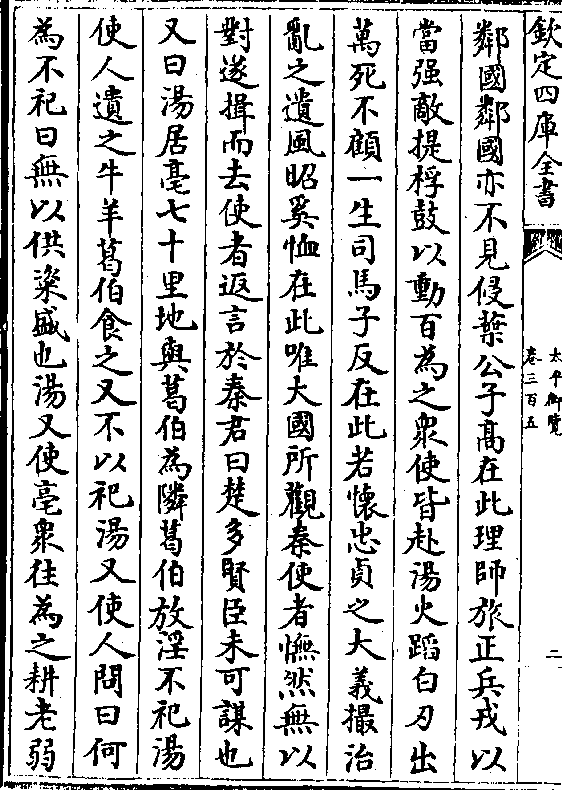 欽定四庫全書
太平御覽
卷三百五
二
鄰國鄰國亦不見侵葉公子髙在此理師旅正兵戎以
當强敵提桴鼓以動百為之衆使皆赴湯火蹈白刃出
萬死不顧一生司馬子反在此若懷忠貞之大義撮治
亂之遺風昭奚恤在此唯大國所觀秦使者憮然無以
對遂揖而去使者返言於秦君曰楚多賢臣未可謀也
又曰湯居亳七十里地與葛伯為隣葛伯放淫不祀湯
使人遺之牛羊葛伯食之又不以祀湯又使人問曰何
為不祀曰無以供粢盛也湯又使亳衆往為之耕老弱